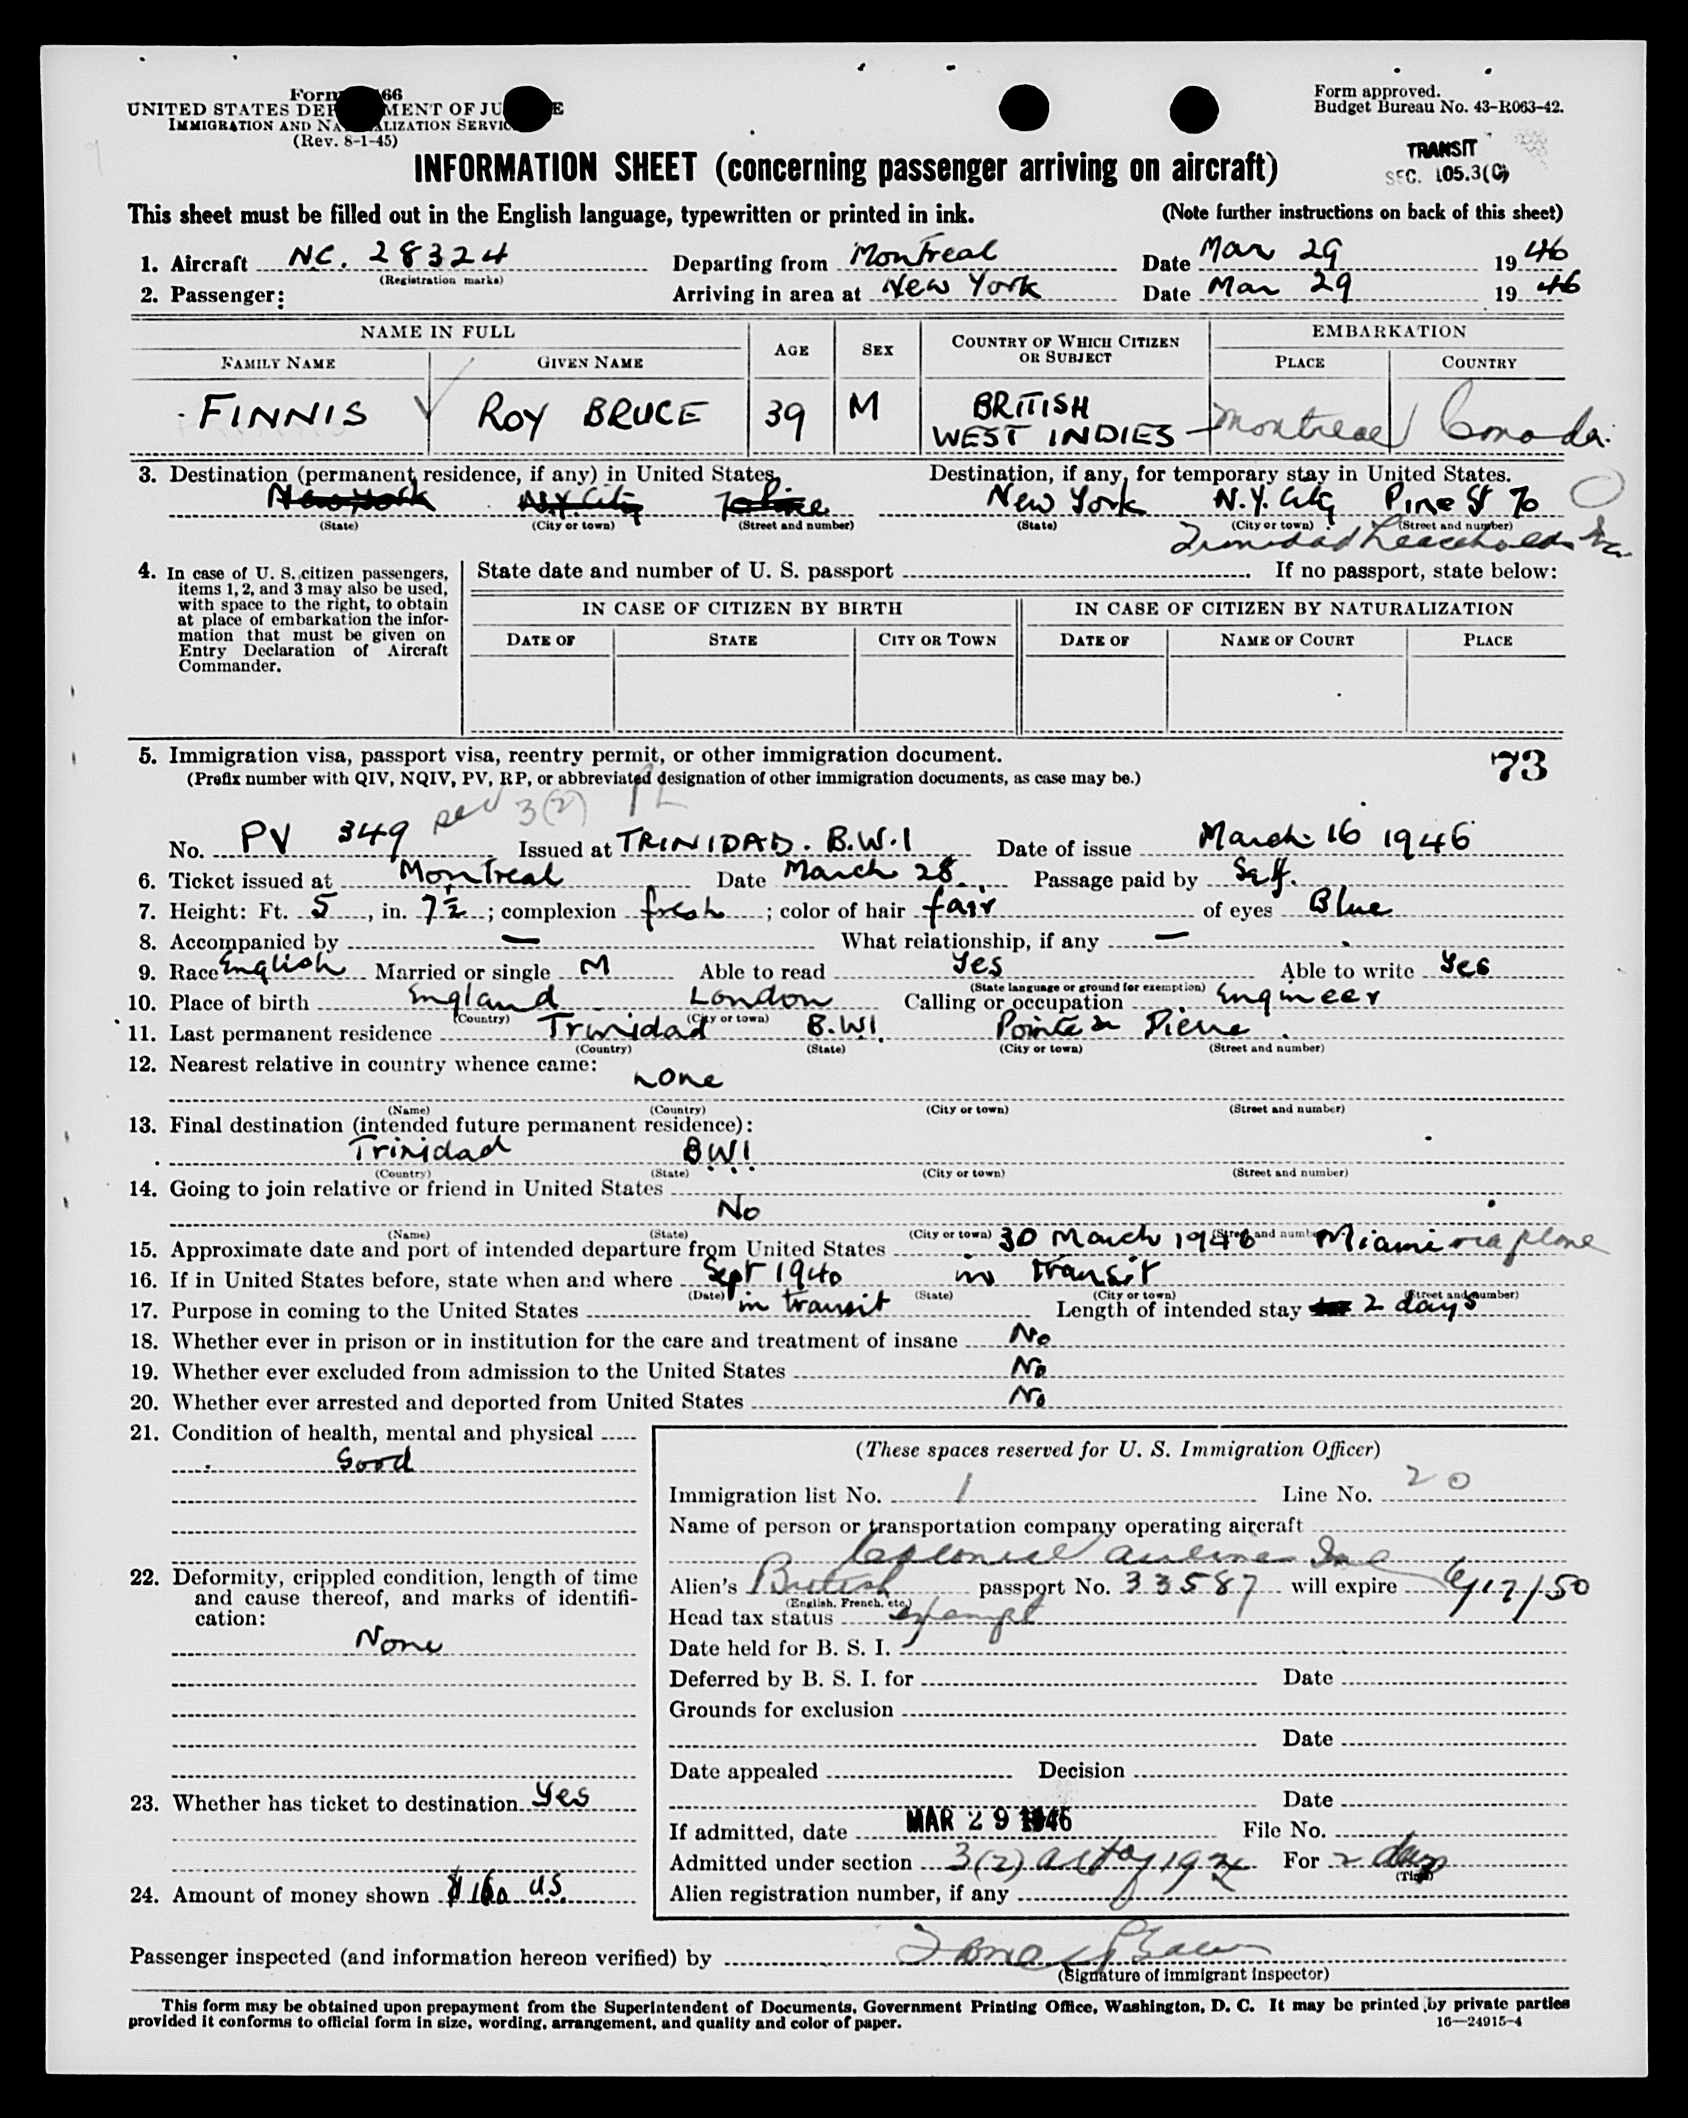 Form 66
UNITED STATES DEP MENT OF JU E
IMMIGRATION AND NA ALIZATION SERVIC
(Rev. 8-1-45)
Form approved.
Budget Bureau No. 43-R063-42.
TRANSIT
SEC. 105.3(C)
INFORMATION SHEET (concerning passenger arriving on aircraft)
This sheet must be filled out in the English language, typewritten or printed in ink. (Note further instructions on back of this sheet)
1. Aircraft NC. 28324 Departing from Montreal Date Mar 29 1946
(Registration marks)
2. Passenger: Arriving in area at New York Date Mar 29 1946
NAME IN FULL AGE SEX COUNTRY OF WHICH CITIZEN OR SUBJECT EMBARKATION
FAMILY NAME GIVEN NAME PLACE COUNTRY
FINNIS ROY BRUCE 39 M BRITISH WEST INDIES Montreal Canada
3. Destination (permanent residence, if any) in United States. Destination, if any, for temporary stay in United States.
New York N.Y. City 70 Pine New York N.Y. City Pine St 70
(State) (City or town) (Street and number) (State) (City or town) (Street and number)
Trinidad Leaseholds
4. In case of U. S. citizen passengers, items 1, 2, and 3 may also be used, with space to the right, to obtain at place of embarkation the information that must be given on Entry Declaration of Aircraft Commander.
State date and number of U. S. passport If no passport, state below:
IN CASE OF CITIZEN BY BIRTH IN CASE OF CITIZEN BY NATURALIZATION
DATE OF STATE CITY OR TOWN DATE OF NAME OF COURT PLACE
5. Immigration visa, passport visa, reentry permit, or other immigration document. 73
(Prefix number with QIV, NQIV, PV, RP, or abbreviated designation of other immigration documents, as case may be.)
3(2)
No. PV 349 Issued at TRINIDAD. B.W.I Date of issue March 16 1946
6. Ticket issued at Montreal Date March 28 Passage paid by Self.
7. Height: Ft. 5, in. 7½; complexion fresh; color of hair fair of eyes Blue
8. Accompanied by — What relationship, if any —
9. Race English Married or single M Able to read Yes Able to write Yes
(State language or ground for exemption)
10. Place of birth England London Calling or occupation Engineer
(Country) (City or town)
11. Last permanent residence Trinidad B.W.I. Pointe a Pierre
(Country) (State) (City or town) (Street and number)
12. Nearest relative in country whence came:
none
(Name) (Country) (City or town) (Street and number)
13. Final destination (intended future permanent residence):
Trinidad B.W.I
(Country) (State) (City or town) (Street and number)
14. Going to join relative or friend in United States
No
(Name) (State) (City or town) (Street and number)
15. Approximate date and port of intended departure from United States 30 March 1946 Miami via plane
16. If in United States before, state when and where Sept 1940 in transit
(Date) (State) (City or town) (Street and number)
17. Purpose in coming to the United States in transit Length of intended stay 2 days
18. Whether ever in prison or in institution for the care and treatment of insane No
19. Whether ever excluded from admission to the United States No
20. Whether ever arrested and deported from United States No
21. Condition of health, mental and physical
Good
22. Deformity, crippled condition, length of time and cause thereof, and marks of identification:
None
23. Whether has ticket to destination Yes
24. Amount of money shown $160 US.
(These spaces reserved for U. S. Immigration Officer)
Immigration list No. 1 Line No. 20
Name of person or transportation company operating aircraft
Colonial Airlines Inc
Alien's British passport No. 33587 will expire 6/17/50
(English, French, etc.)
Head tax status exempt
Date held for B. S. I.
Deferred by B. S. I. for Date
Grounds for exclusion
Date
Date appealed Decision
Date
If admitted, date MAR 29 1946 File No.
Admitted under section 3(2) act of 1924 For 2 days
(Time)
Alien registration number, if any
Passenger inspected (and information hereon verified) by
(Signature of immigrant inspector)
This form may be obtained upon prepayment from the Superintendent of Documents, Government Printing Office, Washington, D. C. It may be printed by private parties
provided it conforms to official form in size, wording, arrangement, and quality and color of paper. 16—24915-4